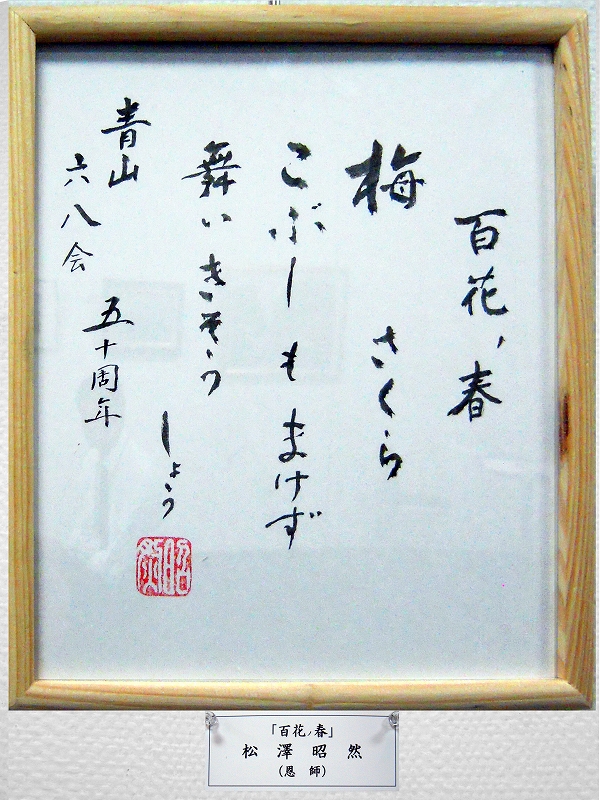 百花ノ春
梅 さくら
こぶしも まけず
舞い きそう
しょう
青山
六八会 五十周年
昭然
「百花ノ春」
松澤昭然
（恩師）